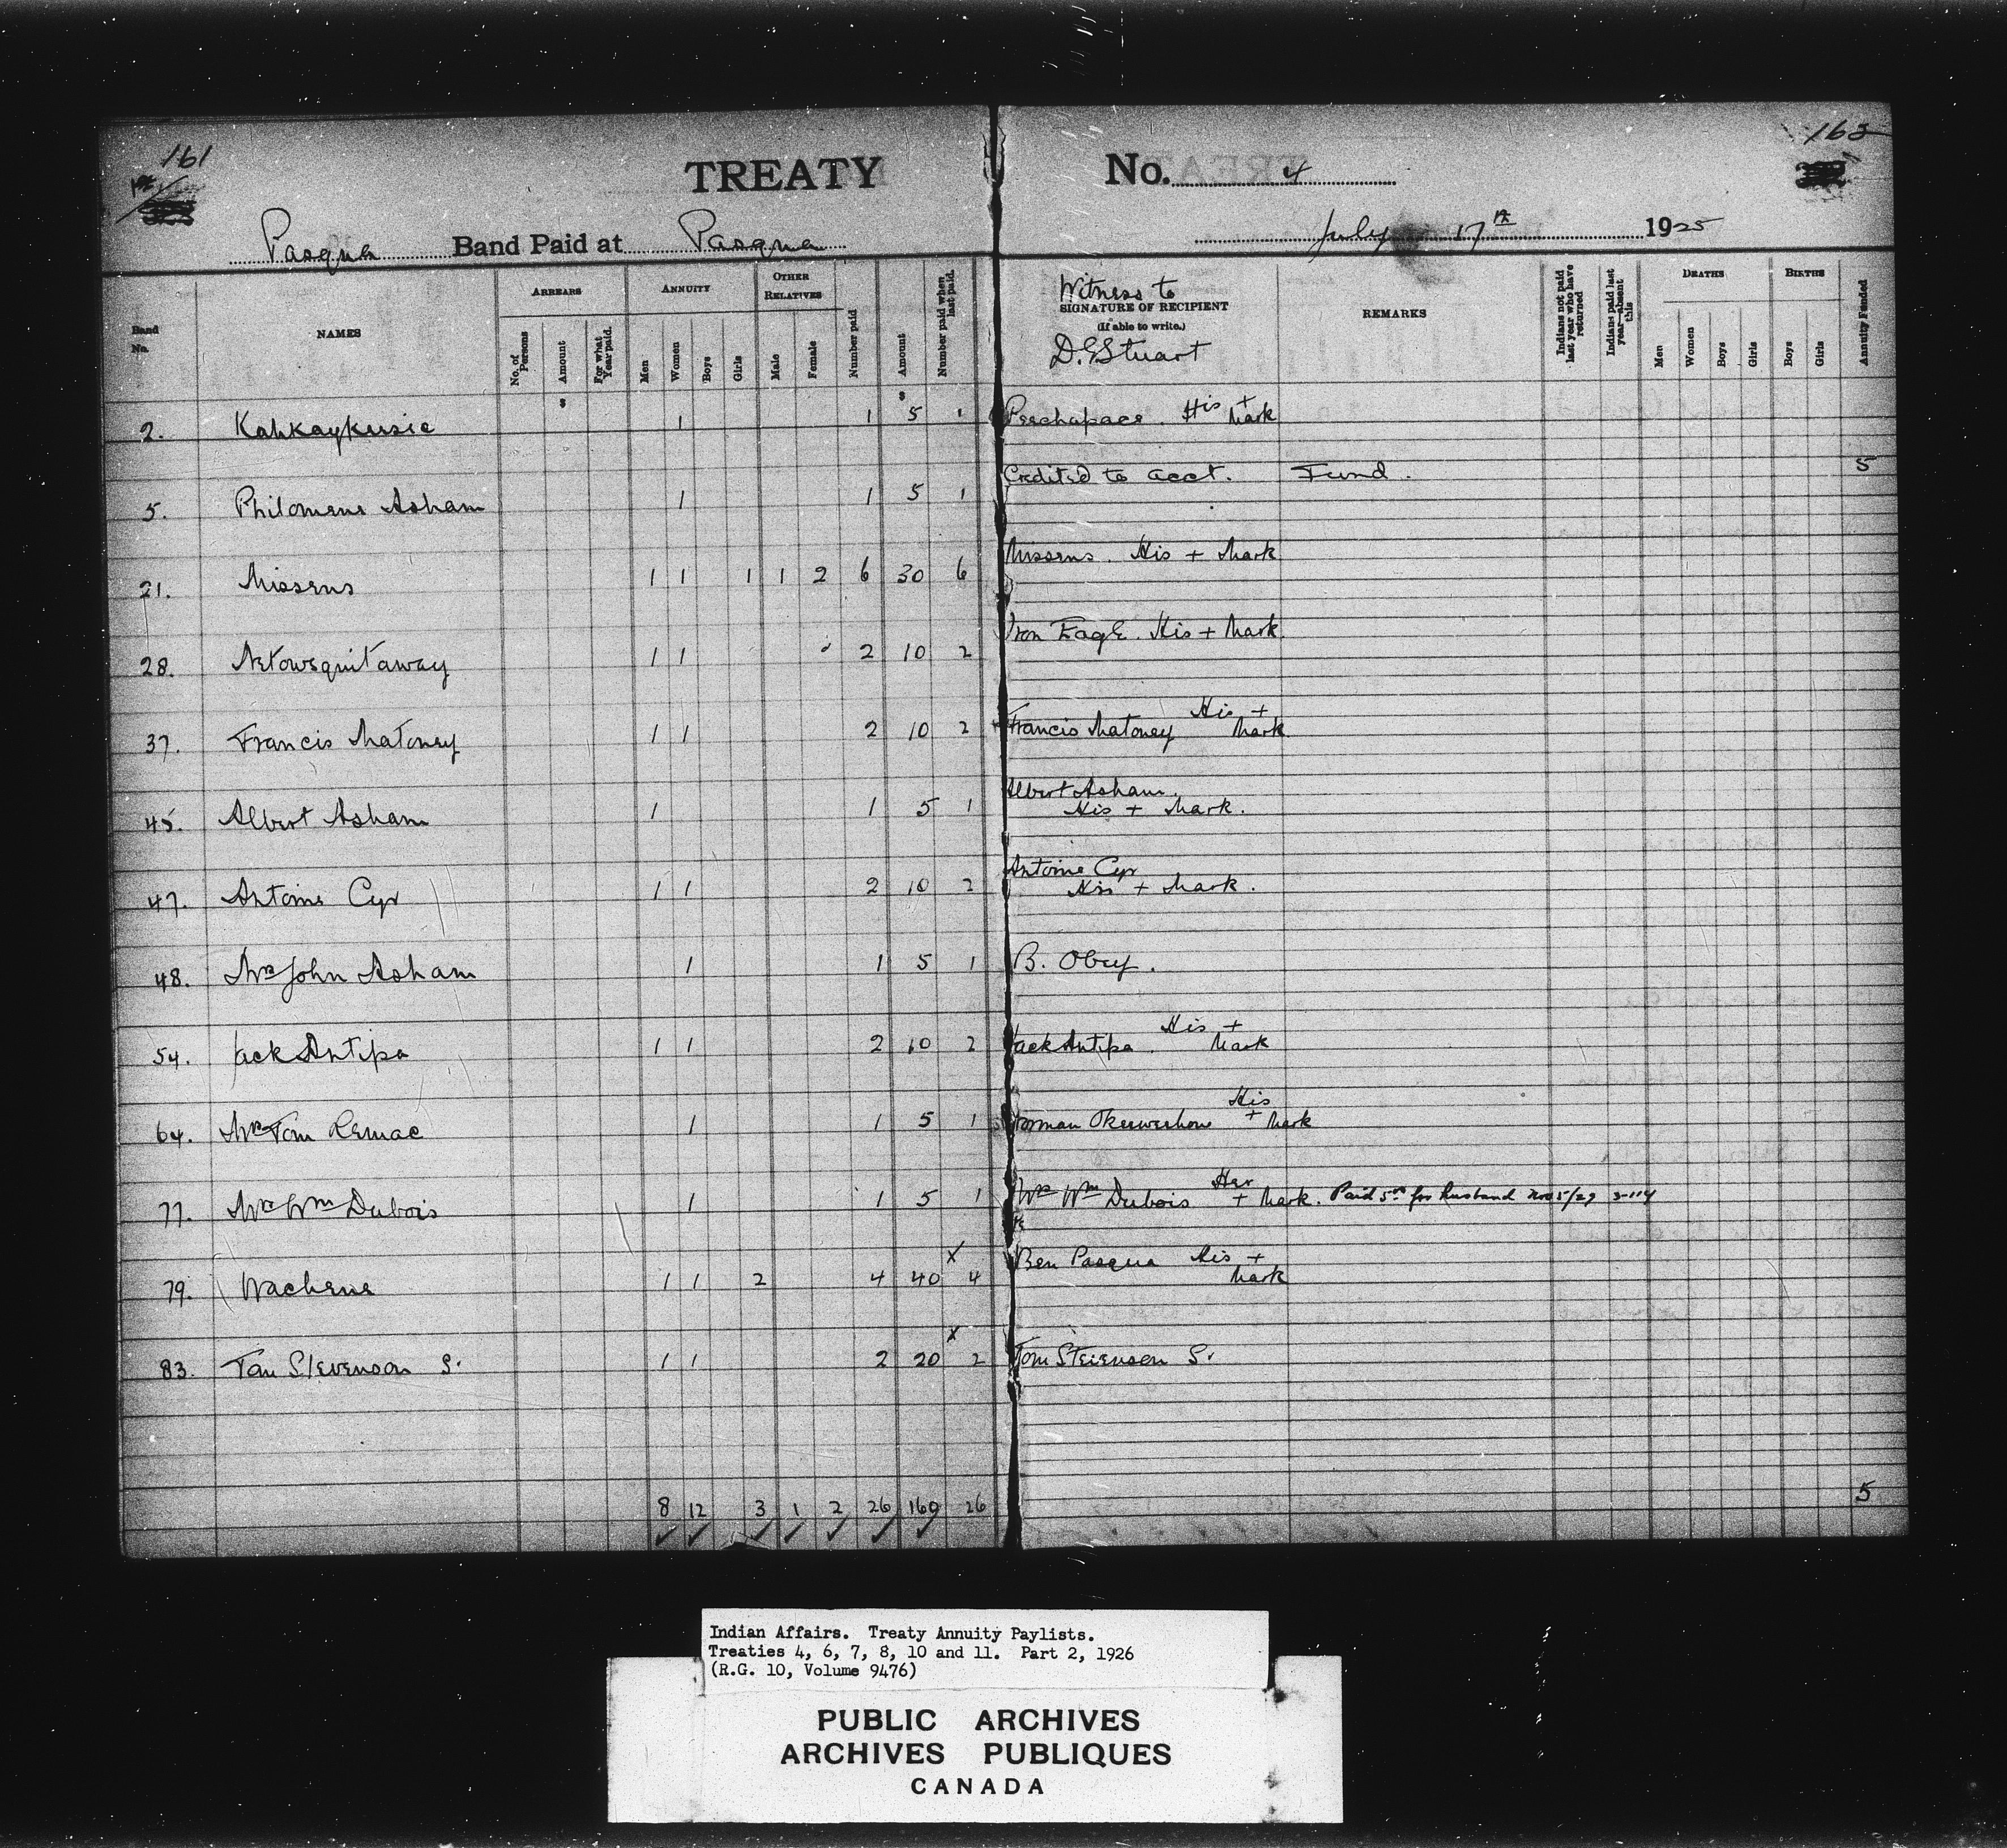 161
163
TREATY No. 4
Pasqua Band Paid at Pasqua July 17th 1925
Band No.
NAMES
ARREARS
No. of Persons
Amount
For what Year paid.
ANNUITY
Men
Women
Boys
Girls
OTHER RELATIVES
Male
Female
Number paid
Amount
Number paid when last paid.
Witness to
SIGNATURE OF RECIPIENT
(If able to write.)
D.G. Stuart
REMARKS
Indians not paid last year who have returned
Indians paid last year—absent this
DEATHS
Men
Women
Boys
Girls
BIRTHS
Boys
Girls
Annuity Funded
$ $
2. Kahkaykusie 1 1 5 1 Peechapace. His + Mark
5. Philomene Asham 1 1 5 1 Credited to acct. Fund. 5
21. Missens 1 1 1 1 2 6 30 6 Missens. His + Mark
28. Aetowequitaway 1 1 2 10 2 Iron Eagle. His + Mark
37. Francis Matoney 1 1 2 10 2 Francis Matoney His + Mark
45. Albert Asham 1 1 5 1 Albert Asham. His + Mark.
47. Antoine Cyr 1 1 2 10 2 Antoine Cyr His + Mark.
48. Mrs John Asham 1 1 5 1 B. Obey.
54. Jack Antipa 1 1 2 10 2 Jack Antipa. His + Mark
64. Mrs Tom 1 1 5 1 Norman His + Mark
77. Mrs Wm Dubois 1 1 5 1 Mrs Wm Dubois Her + Mark. Paid 5.00 for husband
79. Wachene 1 1 2 4 40 x 4 Ben Pasqua His + Mark
83. Tom Stevenson S. 1 1 2 20 x 2 Tom Stevenson S.
8 12 3 1 2 26 160 26 5
Indian Affairs. Treaty Annuity Paylists.
Treaties 4, 6, 7, 8, 10 and 11. Part 2, 1926
(R.G. 10, Volume 9476)
PUBLIC ARCHIVES
ARCHIVES PUBLIQUES
CANADA